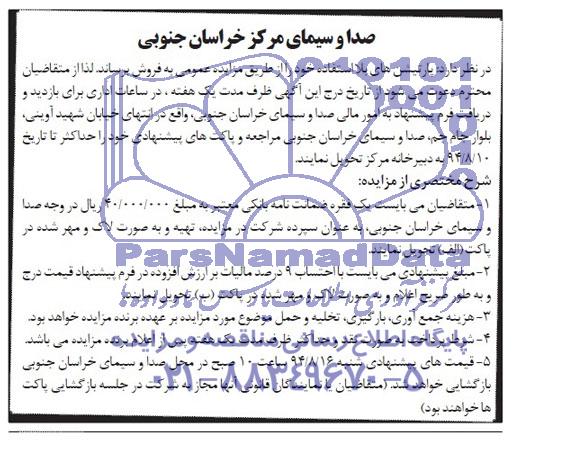 صدا و سیمای مرکز خراسان جنوبی
در نظر دارد: پارتیشن های بلااستفاده خود را از طریق مزایده عمومی به فروش برساند. لذا از متقاضیان
محترم دعوت می شود از تاریخ درج این آگهی ظرف مدت یک هفته، در ساعات اداری برای بازدید و
دریافت فرم پیشنهاد به امور مالی صدا و سیمای خراسان جنوبی، واقع در انتهای خیابان شهید آوینی،
بلوار جام جم، صدا و سیمای خراسان جنوبی مراجعه و پاکت های پیشنهادی خود را حداکثر تا تاریخ
۹۴/۸/۱۰ به دبیرخانه مرکز تحویل نمایند.
شرح مختصری از مزایده:
۱- متقاضیان می بایست یک فقره ضمانت نامه بانکی معتبر به مبلغ ۴۰/۰۰۰/۰۰۰ ریال در وجه صدا
و سیمای خراسان جنوبی، به عنوان سپرده شرکت در مزایده، تهیه و به صورت لاک و مهر شده در
پاکت (الف) تحویل نمایند.
ParsNamadData
۲- مبلغ پیشنهادی می بایست با احتساب ۹ درصد مالیات بر ارزش افزوده در فرم پیشنهاد قیمت درج
و به طور صریح اعلام و به صورت لاک و مهر شده در پاکت (ب) تحویل نمایند.
۳- هزینه جمع آوری، بارگیری، تخلیه و حمل موضوع مورد مزایده بر عهده برنده مزایده خواهد بود.
۴- شرط پرداخت به صورت نقد و حداکثر ظرف مدت یک هفته پس از اعلام برنده مزایده می باشد.
پایگاه اطلاع رسانی مناقصه و مزایده
۵- قیمت های پیشنهادی شنبه ۹۴/۸/۱۶ ساعت ۱۰ صبح در محل صدا و سیمای خراسان جنوبی
بازگشایی خواهد شد. (متقاضیان یا نمایندگان قانونی آنها مجاز به شرکت در جلسه بازگشایی پاکت
ها خواهند بود)
۰۲۱-۸۸۳۴۹۶۷۰-۵